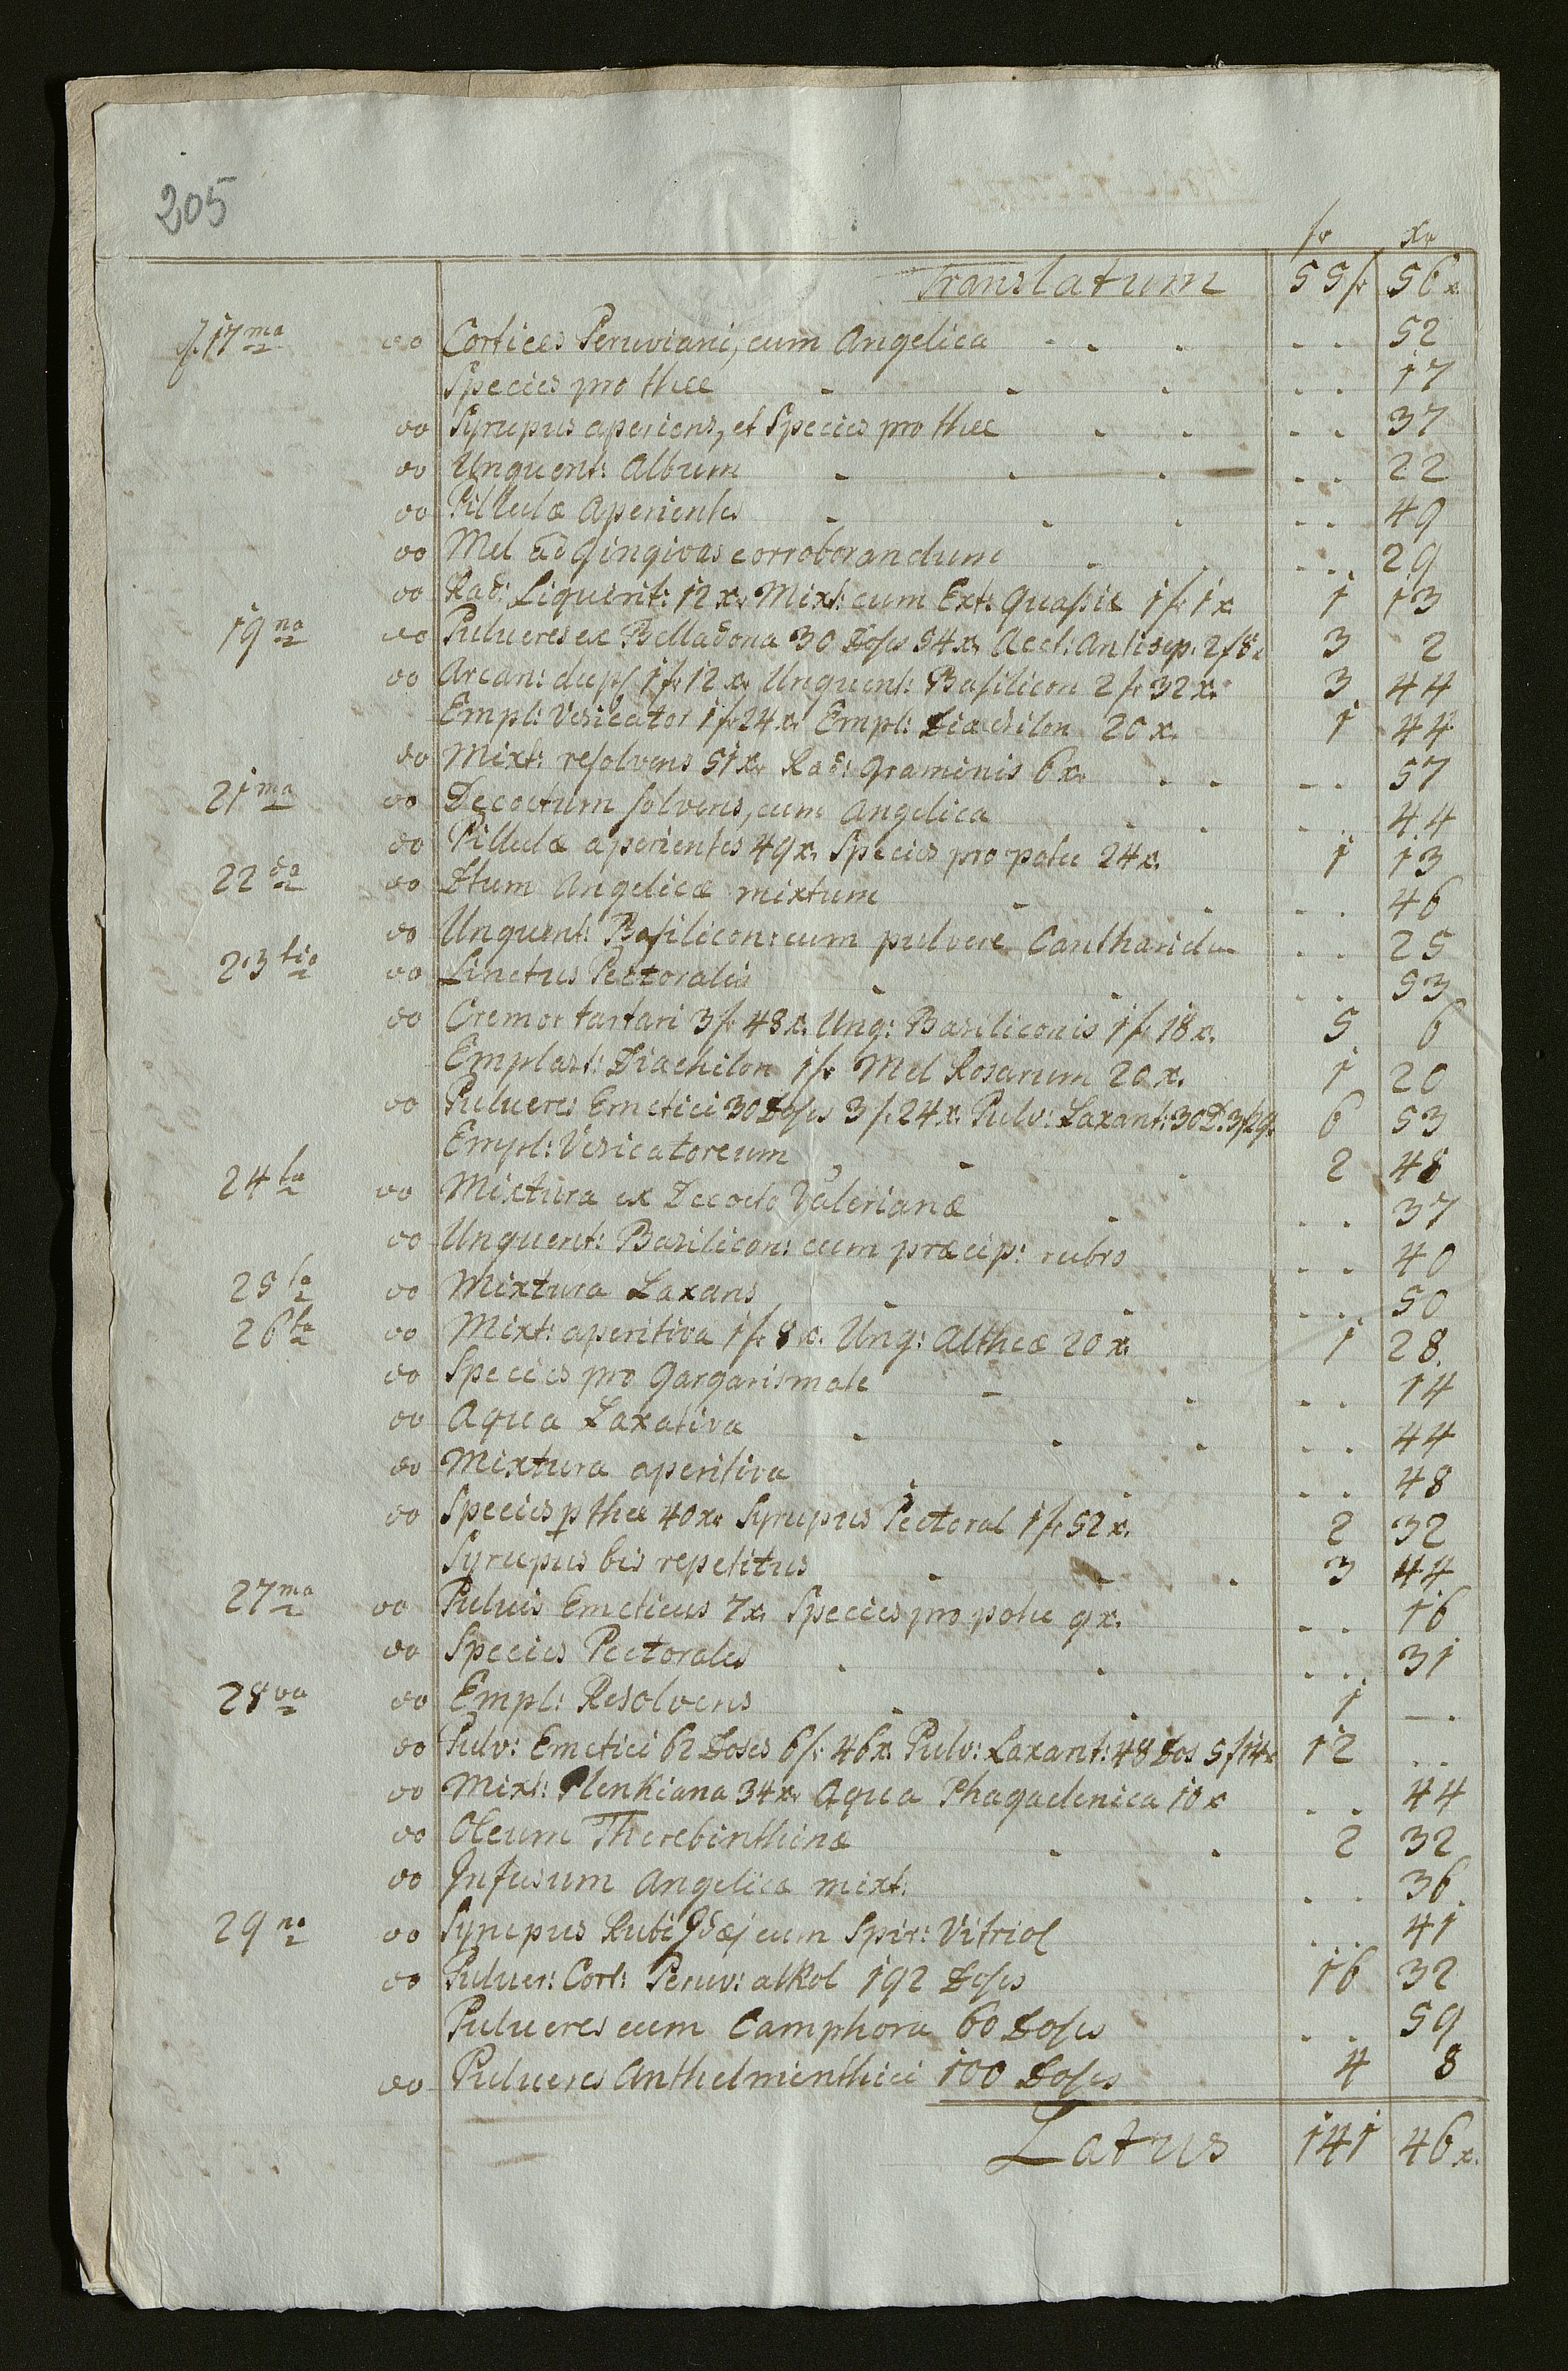 205
fr xr
Translatum 55 fr 56 x
17ma eo Cortices Peruviani, cum Angelica - . . . . 52
Species pro thee - . . . . 17
eo Syrupus aperiens, et Species pro thee . . . . 37
eo Unguent: Album - . . . . 22
eo Pillulæ Aperientes - . . . . 49
eo Mel ad Gingivas corroborandum - . . . 29
eo Rad: Liquirit: 12 xr Mixt: cum Ext: Quassie 1 fr 1 x 1 13
19na eo Pulueres ex Belladona 30 Doses 54 xr Acet: Antisep. 2 f 8 x 3 2
eo Arcan: dupl 1 fr 12 xr Unguent: Basilicon 2 fr 32 x. 3 44
Empl: Vesicator 1 fr 24 x. Empl: Diachilon 20 x. 1 44
eo Mixt: resolvens 51 xr Rad: Graminis 6 xr . . . . 57
21ma eo Decoctum solvens, cum Angelica . . . . 44
eo Pillulæ aperientes 49 x. Species pro potu 24 x. 1 13
22da eo Dtum Angelicæ mixtum - . . . 46
eo Unguent: Basilicon: cum pulvere Cantharidu . . 25
23tia eo Linctus Pectoralis - . . . 53
eo Cremor tartari 3 fr 48 x. Ung: Basiliconis 1 fr 18 x. 5 6
Emplast: Diachilon 1 fr Mel Rosarum 20 x. 1 20
eo Pulueres Emetici 30 Doses 3 f. 24 x. Pulv: Laxant: 30 D. 3 f 29 6 53
Empl: Vesicatoreum - . 2 48
24ta eo Mixtura ex Decocto Valerianæ . . . 37
eo Unguent: Basilicon: cum præcip: rubro . . 40
25ta eo Mixtura Laxans - . . . . 50
26ta eo Mixt: aperitiva 1 fr 8 x. Ung: Altheæ 20 x. 1 28.
eo Species pro Gargarismate - . . . 14
eo Aqua Laxativa . . . . . 44
eo Mixtura aperitiva . . . . 48
eo Species p thee 40 xr Syrupus Pectoral 1 fr 52 x. 2 32
Syrupus bis repetitus - - . 3 44
27ma eo Puluis Emeticus 7 x. Species pro potu 9 x. . . 16
eo Species Pectorales . . . . . 31
28va eo Empl: Resolvens . . 1 -.
eo Pulv: Emetici 62 Doses 6 fr 46 x. Pulv: Laxant: 48 Dos 5 f 14 x 12 . .
eo Mixt: Plenkiana 34 xr Aqua Phagadenica 10 x . . 44
eo Oleum Therebinthinæ . . 2 32
eo Infusum Angelicæ mixt: . . 36.
29na eo Syrupus Rubi Idæj cum Spir: Vitriol . . 41
eo Puluer: Cort: Peruv: alkol 192 Doses 16 32
Pulueres cum Camphora 60 Doses . . 59
eo Pulueres Anthelminthici 100 Doses 4 8
Latus 141 46 x.